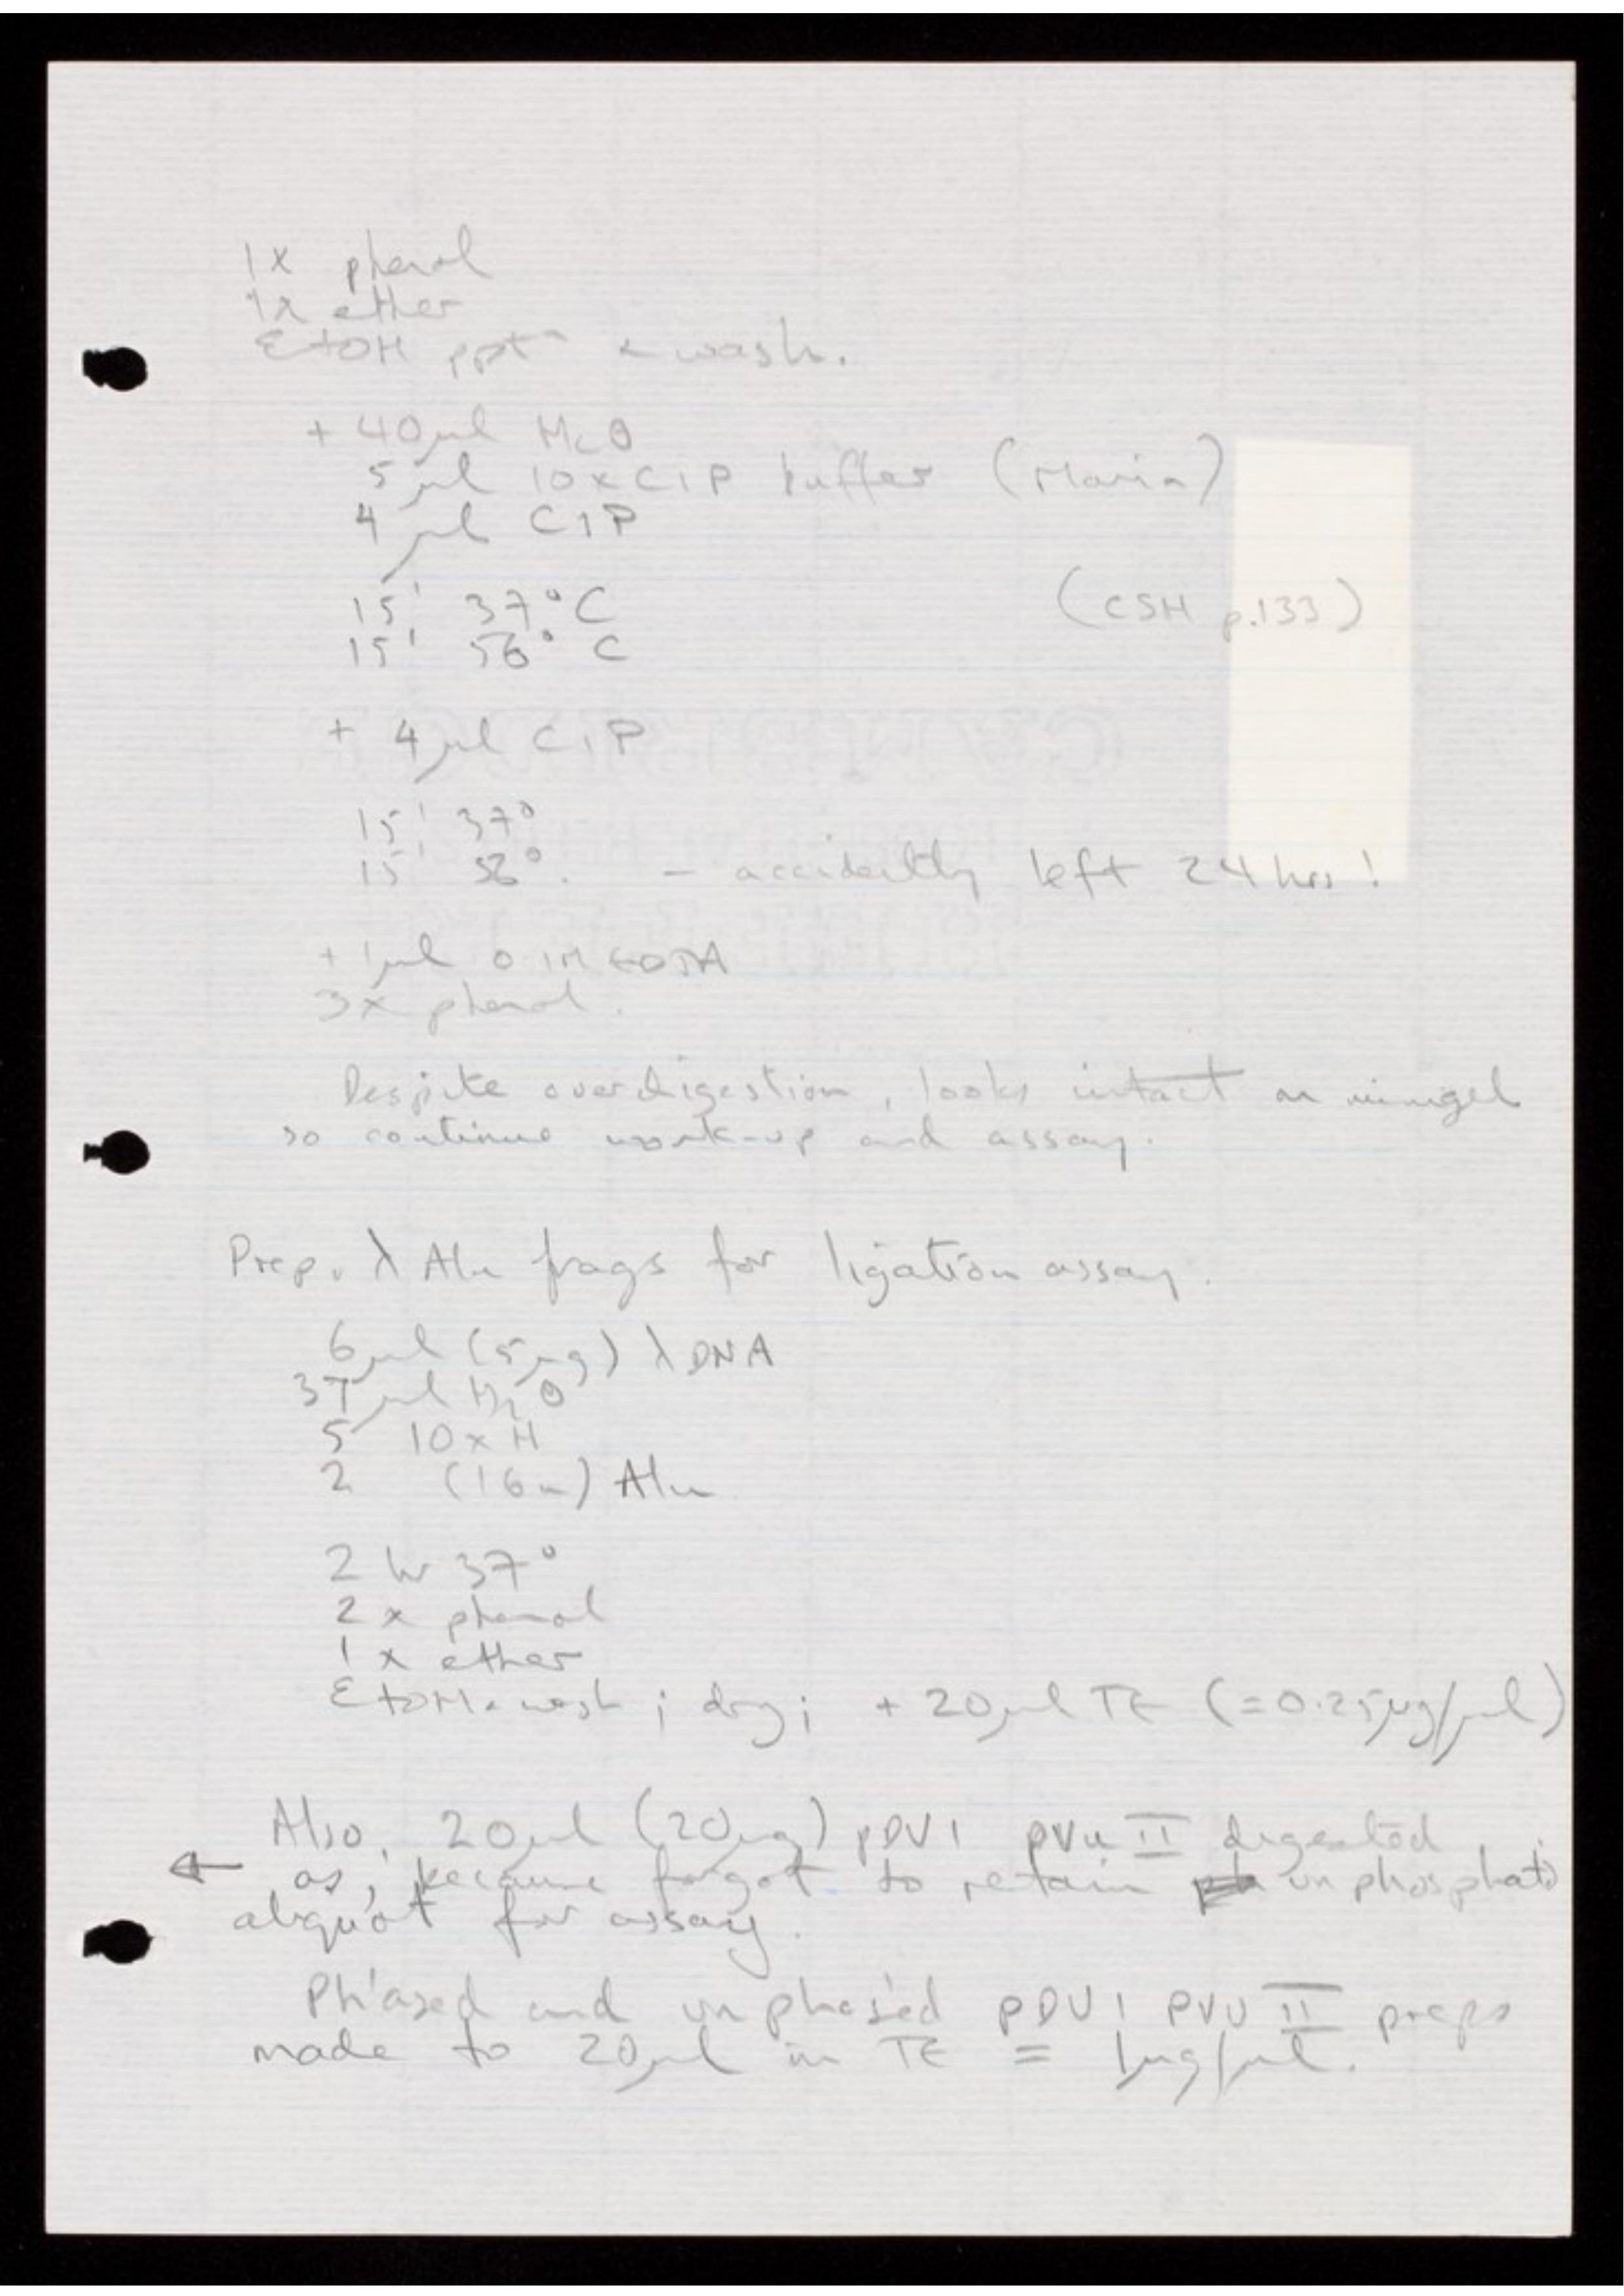 1x phenol
1x ether
EtOH pptn & wash.
+ 40µl H2O
5µl 10xCIP buffer (Maria)
4µl CIP
15' 37°C (CSH p.133)
15' 56°C
+ 4µl CIP
15' 37°
15' 56°. - accidently left 24 hrs!
+ 1µl 0.1M EDTA
3x phenol.
Despite overdigestion, looks intact on minigel
so continue work-up and assay.
Prep. λ Alu frags for ligation assay.
6µl (5µg) λ DNA
37µl H2O
5 10xH
2 (16u) Alu
2 hr 37°
2 x phenol
1 x ether
EtOH & wash; dry; + 20µl TE (=0.25µg/µl)
Also, 20µl (20µg) pDV1 PVu II digested
← as, because forgot to retain unphosphat'd
aliquot for assay.
Ph'ased and unphas'ed pDV1 PVU II preps
made to 20µl in TE = 1µg/µl.